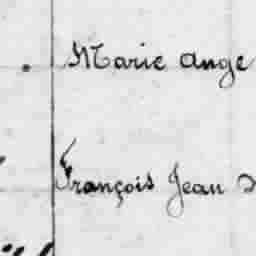 Marie Ange
François Jean